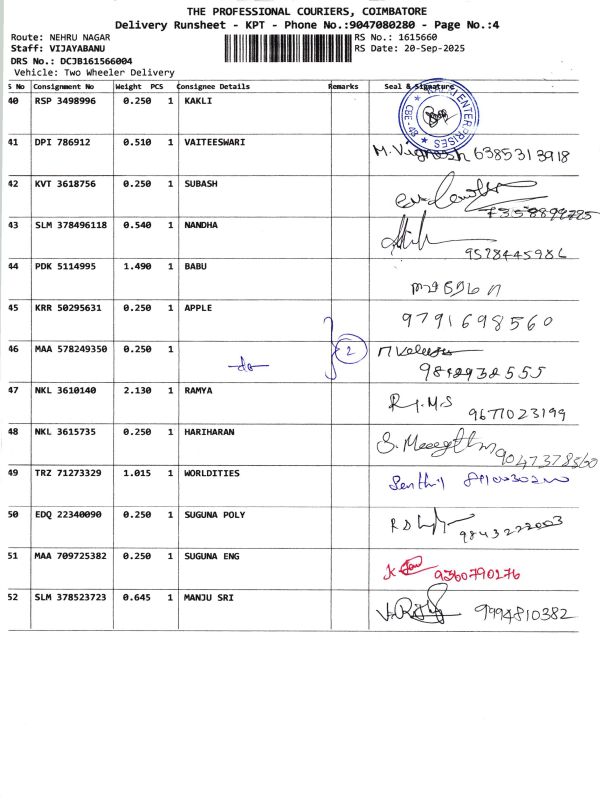 THE PROFESSIONAL COURIERS, COIMBATORE
Delivery Runsheet - KPT - Phone No.:9047080280 - Page No.:4
Route: NEHRU NAGAR RS No.: 1615660
Staff: VIJAYABANU RS Date: 20-Sep-2025
DRS No.: DCJB161566004
Vehicle: Two Wheeler Delivery
S No Consignment No Weight PCS Consignee Details Remarks Seal & Signature
40 RSP 3498996 0.250 1 KAKLI
ENTERPRISES CBE-43
41 DPI 786912 0.510 1 VAITEESWARI
M. Vignesh 6385313918
42 KVT 3618756 0.250 1 SUBASH
7358899785
43 SLM 378496118 0.540 1 NANDHA
9578445986
44 PDK 5114995 1.490 1 BABU
45 KRR 50295631 0.250 1 APPLE
9791698560
46 MAA 578249350 0.250 1
do 2
47 NKL 3610140 2.130 1 RAMYA
R.M.S 9677023199
48 NKL 3615735 0.250 1 HARIHARAN
49 TRZ 71273329 1.015 1 WORLDITIES
Senthil
50 EDQ 22340090 0.250 1 SUGUNA POLY
51 MAA 709725382 0.250 1 SUGUNA ENG
9360790276
52 SLM 378523723 0.645 1 MANJU SRI
9994810382